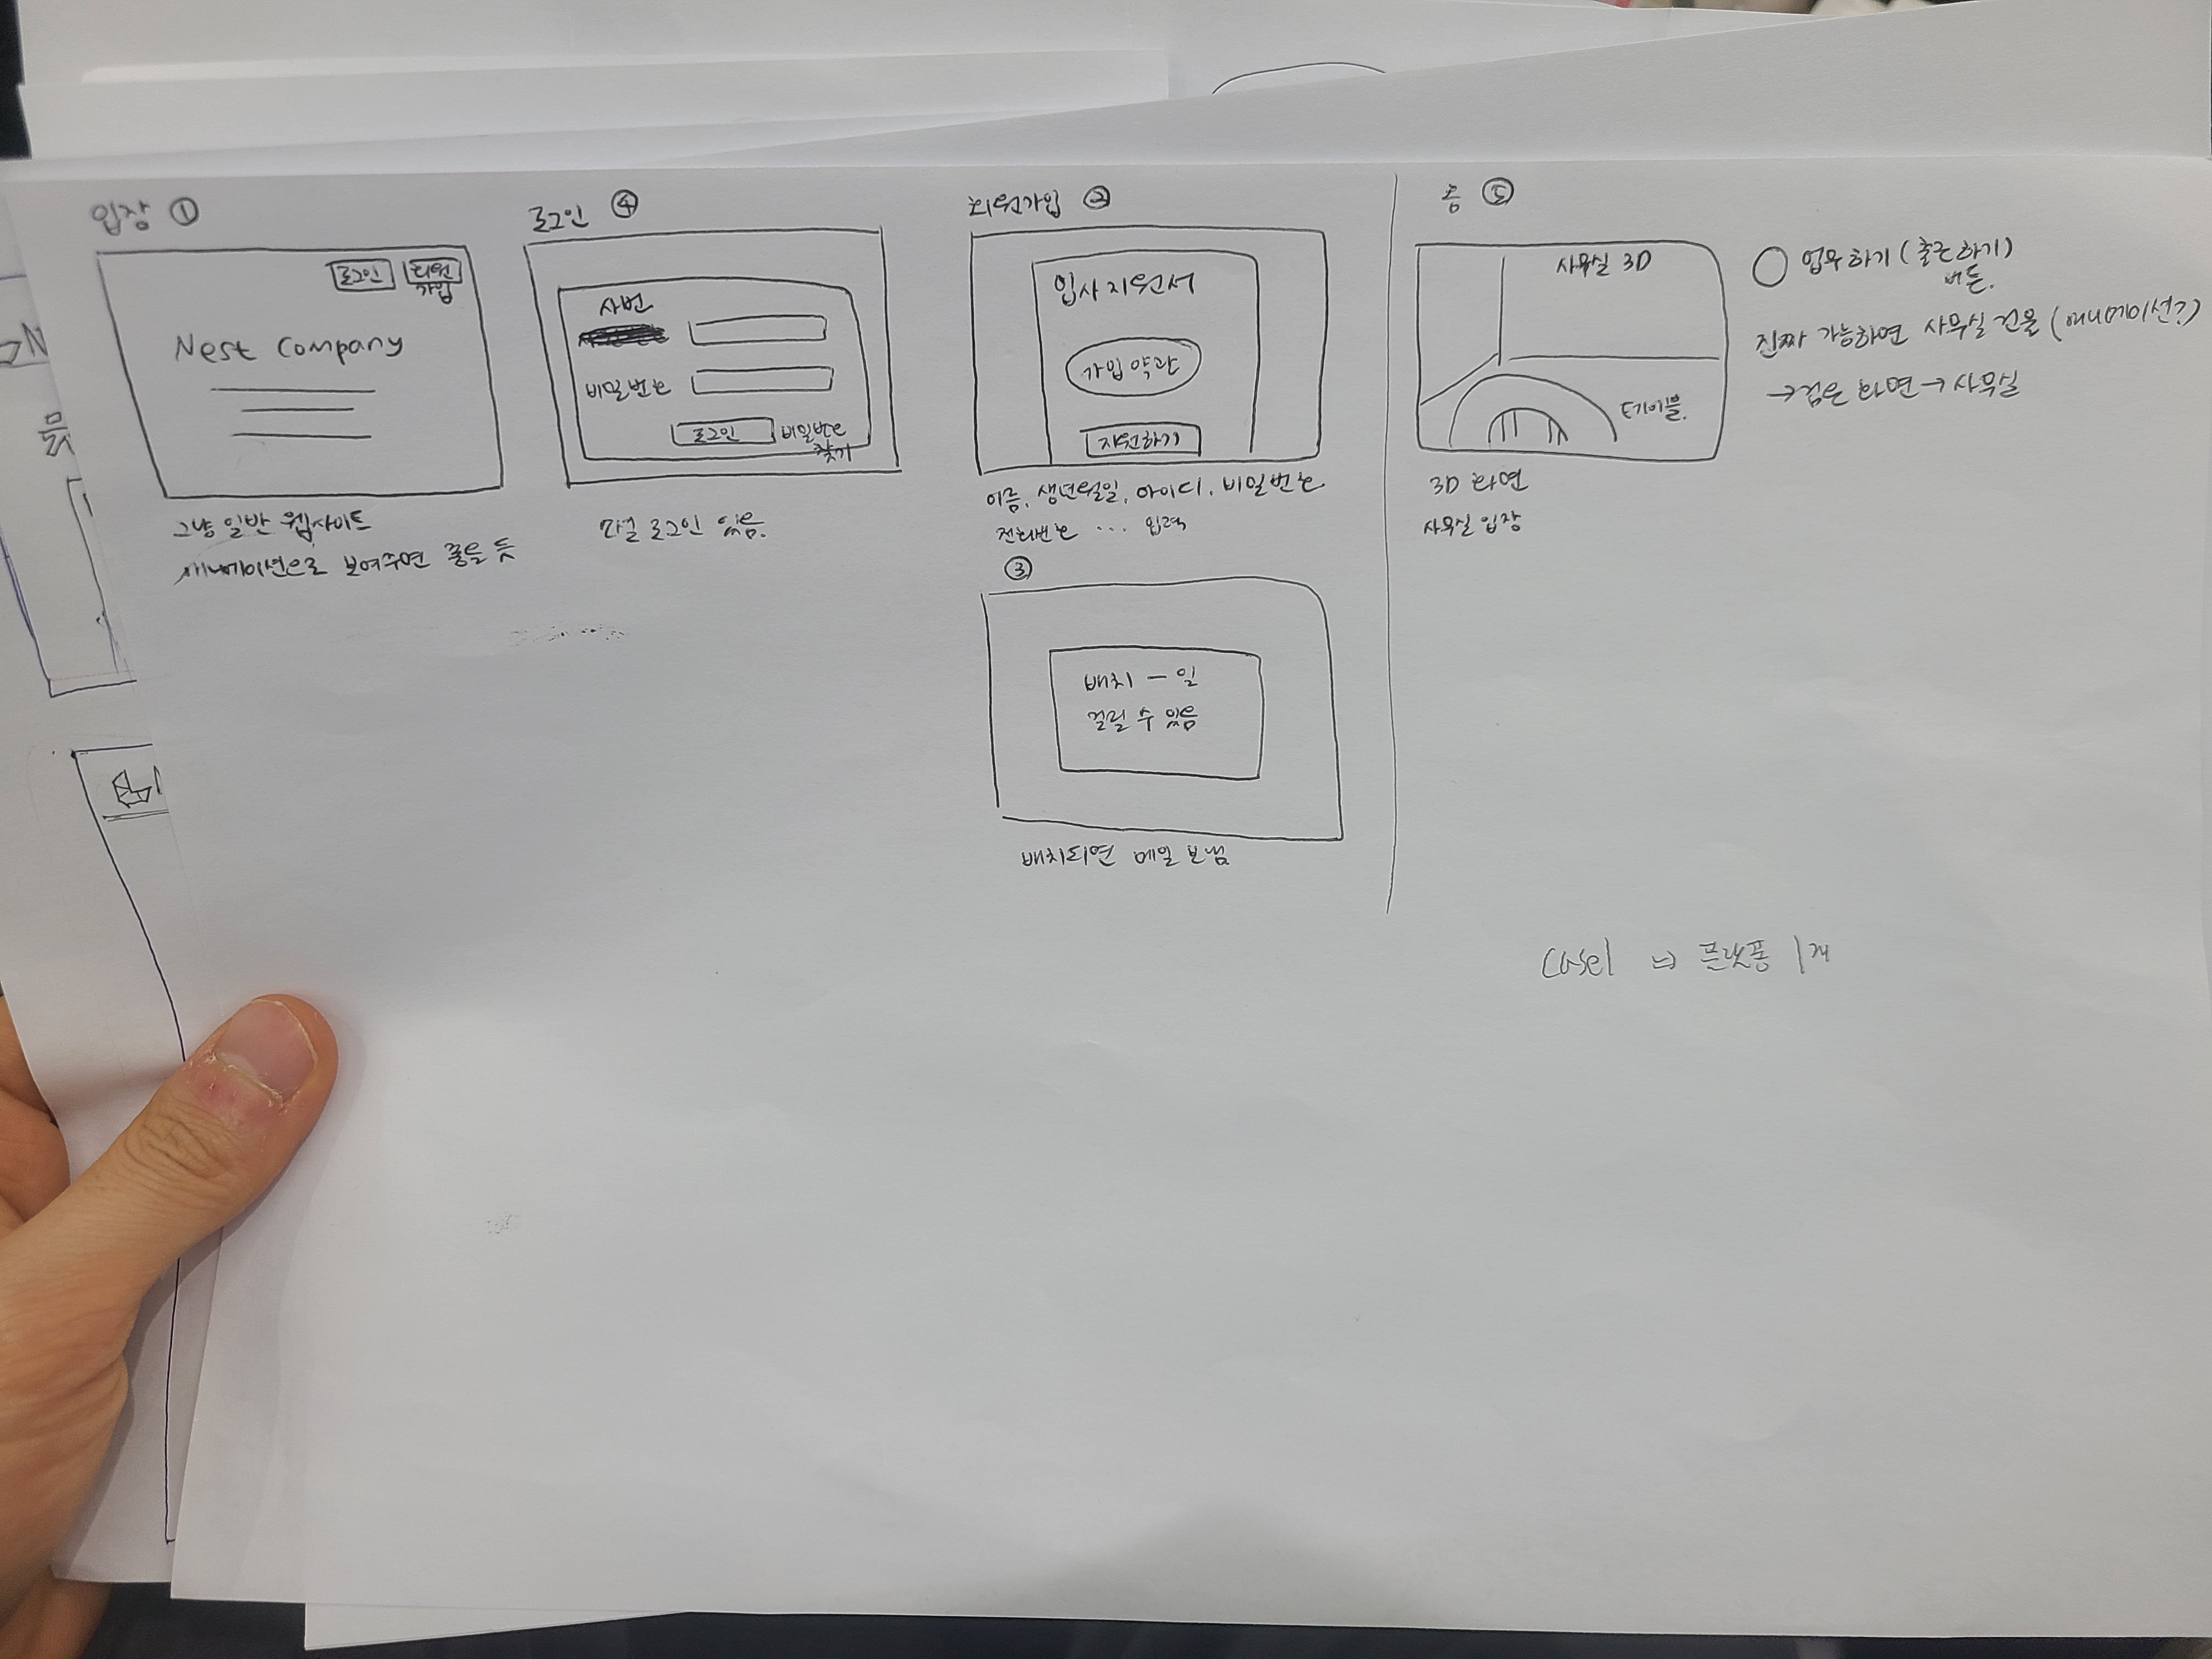 입장 ①
로그인 회원
가입
Nest Company
그냥 일반 웹사이트
애니메이션으로 보여주면 좋을 듯
로그인 ④
사번
비밀번호
로그인 비밀번호
찾기
로그인 있음.
회원가입 ②
입사지원서
가입 약관
지원하기
이름, 생년월일, 아이디, 비밀번호
전화번호 ... 입력
③
배치 - 일
걸릴 수 있음
배치되면 메일 보냄
홈 ⑤
사무실 3D
테이블.
3D 화면
사무실 입장
업무하기 (출근하기)
버튼.
진짜 가능하면 사무실 건물 (애니메이션?)
→ 검은 화면 → 사무실
case1 ⇒ 플랫폼 1개